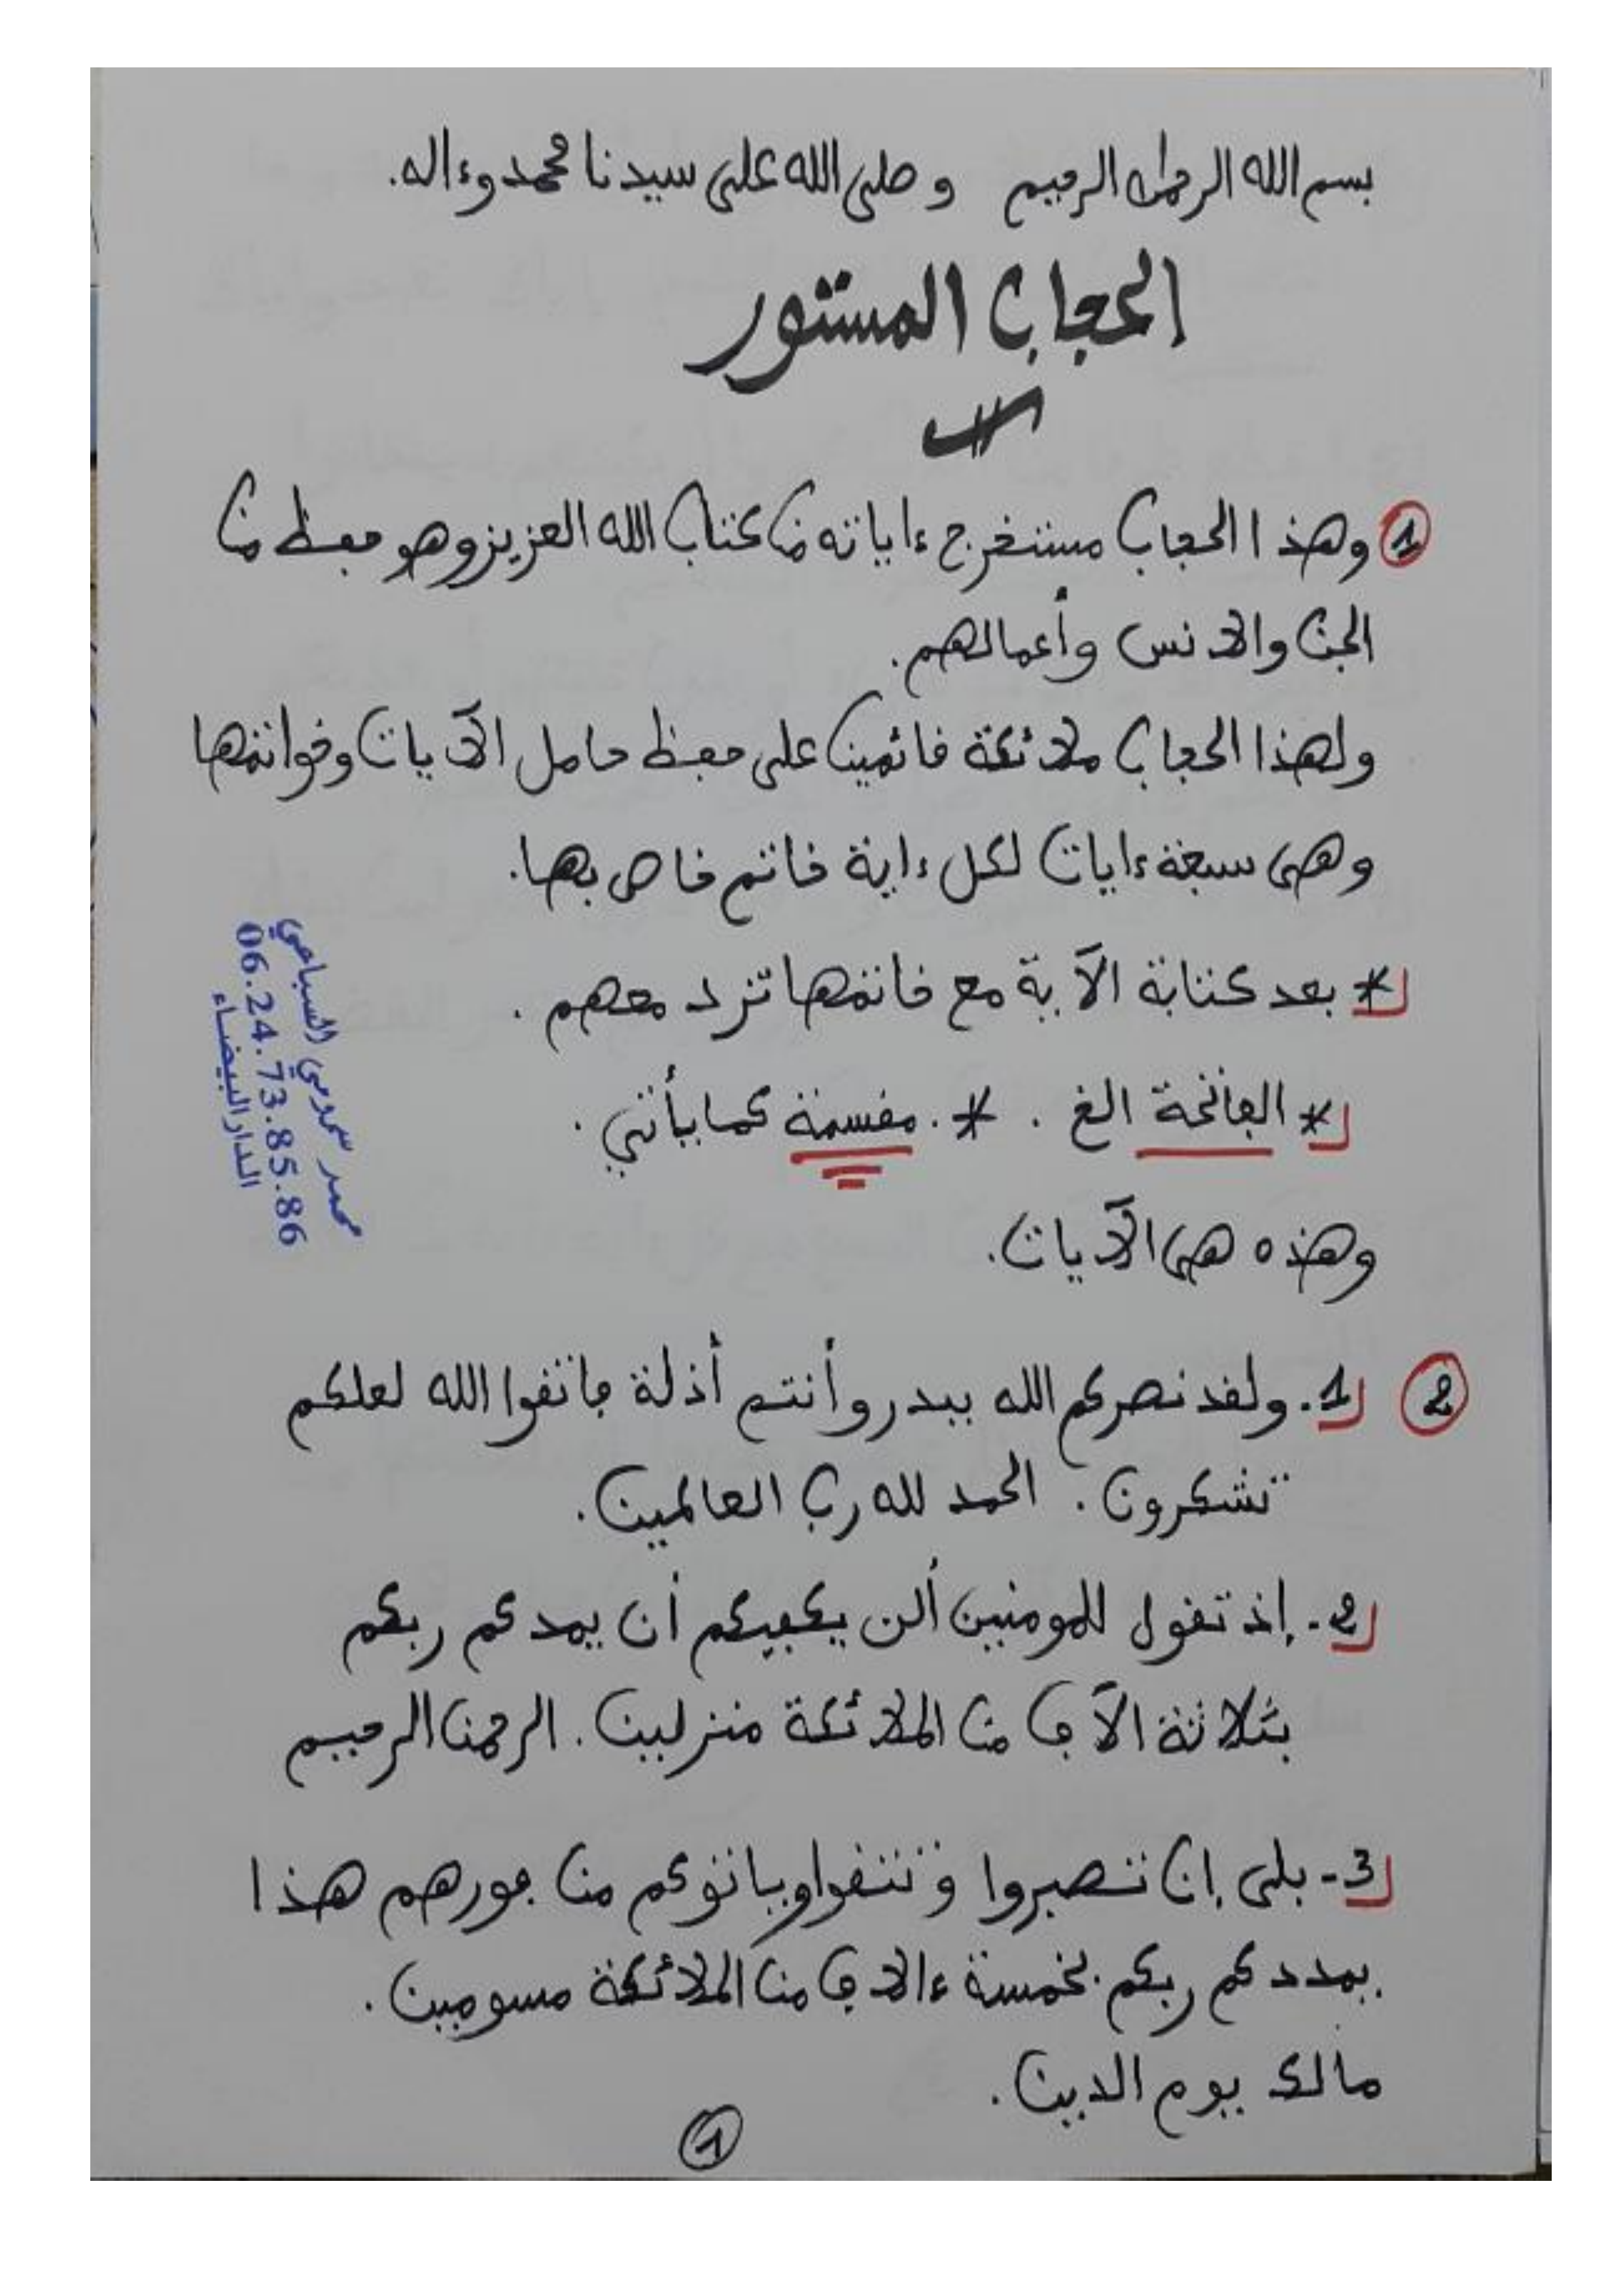 بسم الله الرحمان الرحيم وصلى الله على سيدنا محمد وءاله.
الحجاب المستور
① وهذا الحجاب مستخرج ءاياته من كتاب الله العزيز وهو حفظ من
الجن والانس وأعمالهم.
ولهذا الحجاب ملائكة قائمين على حفظ حامل الآيات وخواتمها
وهي سبعة ءايات لكل ءاية خاتم خاص بها.
* بعد كتابة الآية مع خاتمها تزد معهم.
* الفاتحة الخ. *. مقسمة كما يأتي.
وهذه هي الآيات.
② 1. ولقد نصركم الله ببدر وأنتم أذلة فاتقوا الله لعلكم
تشكرون. الحمد لله رب العالمين.
2-. إذ تقول للمومنين ألن يكفيكم أن يمدكم ربكم
بثلاثة الآف من الملائكة منزلين. الرحمن الرحيم
3- بلى إن تصبروا وتتقوا وياتوكم من فورهم هذا
يمددكم ربكم بخمسة ءالاف من الملائكة مسومين.
مالك يوم الدين.
①
محمد السباعي
06.24.73.85.86
الدار البيضاء